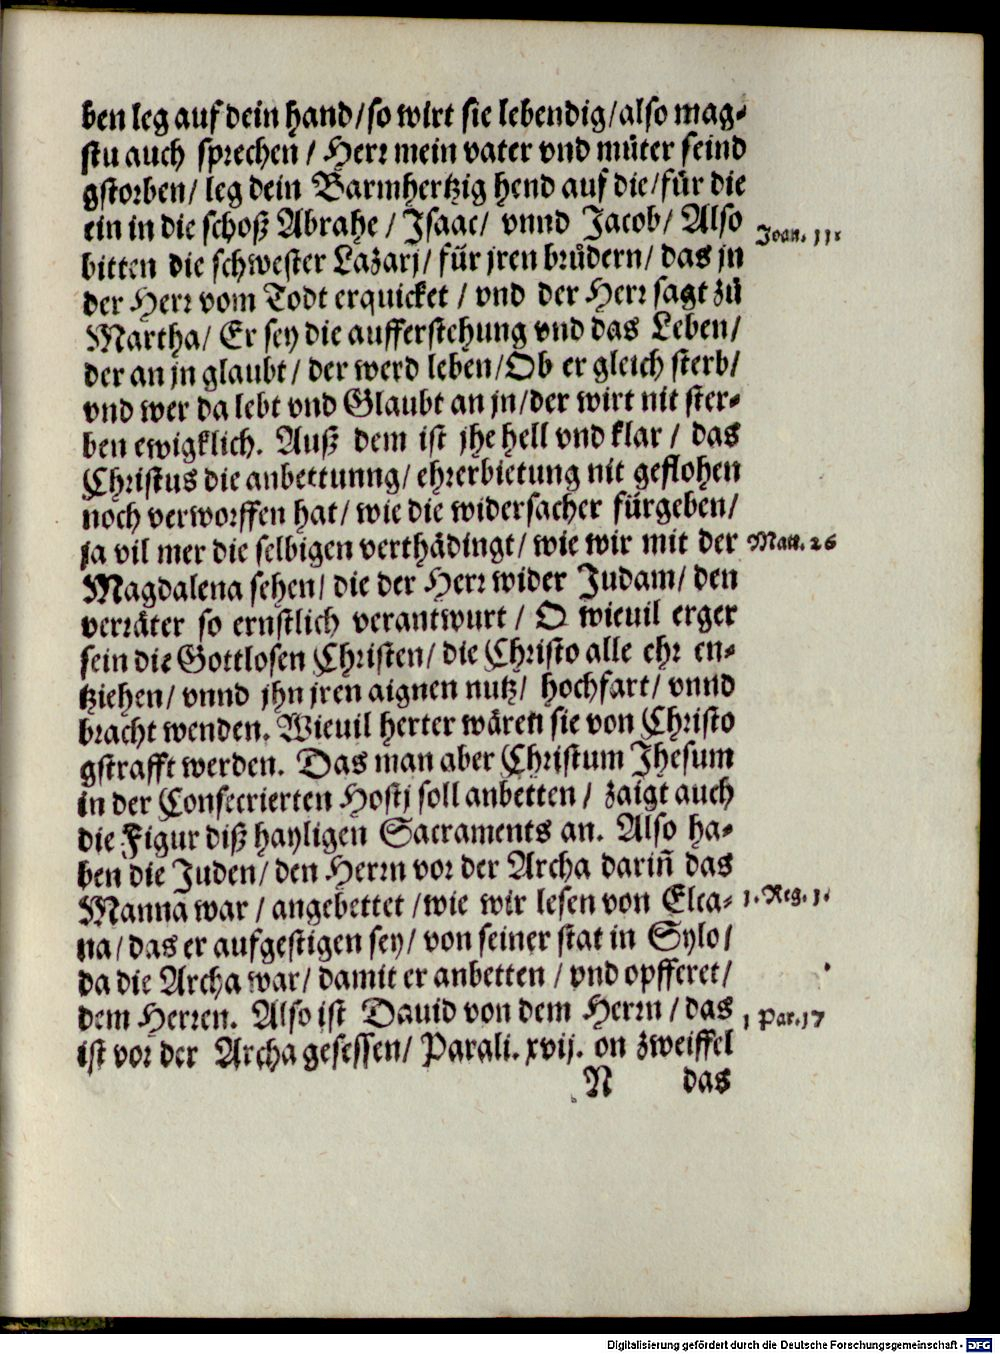 ben leg auf dein hand/so wirt sie lebendig/also mag-
stu auch sprechen / Herr mein vater vnd müter seind
gstorben/ leg dein Barmhertzig hend auf die/für die
ein in die schoß Abrahe / Isaac/ vnnd Jacob/ Also
Joan. 11.
bitten die schwester Lazarj/ für jren brüdern/ das jn
der Herr vom Todt erquicket / vnd der Herr sagt zů
Martha/ Er sey die aufferstehung vnd das Leben/
der an jn glaubt/ der werd leben/Ob er gleich sterb/
vnd wer da lebt vnd Glaubt an jn/der wirt nit ster-
ben ewigklich. Auß dem ist jhe hell vnd klar / das
Christus die anbettunng/ ehrerbietung nit geflohen
noch verworffen hat/ wie die widersacher fürgeben/
ja vil mer die selbigen verthädingt/ wie wir mit der
Matt. 26
Magdalena sehen/ die der Herr wider Judam/ den
verräter so ernstlich verantwurt / O wieuil erger
sein die Gottlosen Christen/ die Christo alle ehr en-
tziehen/ vnnd jhn jren aignen nutz/ hochfart/ vnnd
bracht wenden. Wieuil herter wären sie von Christo
gstrafft werden. Das man aber Christum Jhesum
in der Consecrierten Hostj soll anbetten / zaigt auch
die Figur diß hayligen Sacraments an. Also ha-
ben die Juden/ den Herrn vor der Archa dariñ das
Manna war / angebettet /wie wir lesen von Elca-
1. Reg. 1.
na/ das er aufgestigen sey/ von seiner stat in Sylo/
da die Archa war/ damit er anbetten / vnd opfferet/
dem Herren. Also ist Dauid von dem Herrn / das
1 Par. 17
ist vor der Archa gesessen/ Parali. xvij. on zweiffel
N das
Digitalisierung gefördert durch die Deutsche Forschungsgemeinschaft - DFG